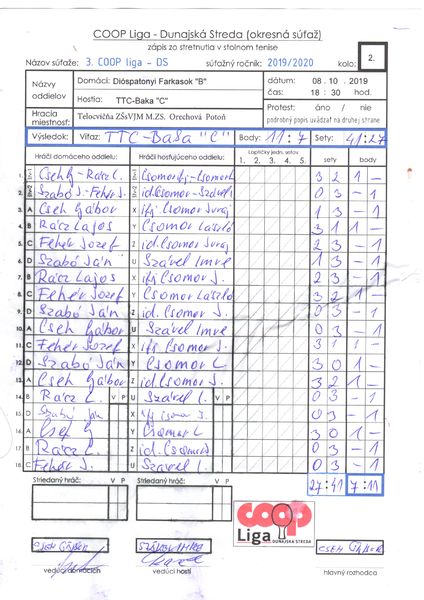 COOP Liga - Dunajská Streda (okresná súťaž)
zápis zo stretnutia v stolnom tenise
Názov súťaže: 3. COOP liga - DS súťažný ročník: 2019/2020 kolo: 2.
Názvy oddielov
Domáci: Dióspatonyi Farkasok "B"
Hostia: TTC-Baka "C"
dátum: 08 . 10 . 2019
čas: 18 : 30 hod.
Hracia miestnosť: Telocvičňa ZŠsVJM M.ZS. Orechová Potôň
Protest: áno / nie
podpis dôvodov uvádzať na druhej strane
Výsledok: Víťaz: TTC-Baka "C" Body: 11:7 Sety: 41:27
Hráči domáceho oddielu: Hráči hosťujúceho oddielu: Loptičky jedn. setov 1. 2. 3. 4. 5. sety body
1. Cseh G.-Rácz L. 3 2 1 -
2. Szabó J.-Fehér J. id.Csomor-Szável I. 0 3 - 1
3. A Cseh Gábor X ifj Csomor Juraj 1 3 - 1
4. B Rácz Lajos Y Csomor Laszló 3 1 1 -
5. C Fehér Jozef Z id.Csomor Juraj 2 3 - 1
6. D Szabó Ján U Szável Imre 1 3 - 1
7. B Rácz Lajos X ifj Csomor J. 2 3 - 1
8. C Fehér Jozef Y Csomor Laszló 3 2 1 -
9. D Szabó Ján Z id. Csomor J. 0 3 - 1
10. A Cseh Gábor U Szável Imre 0 3 - 1
11. C Fehér Jozef X ifj. Csomor J. 3 1 1 -
12. D Szabó Ján Y Csomor L. 3 0 1 -
13. A Cseh Gábor Z id.Csomor J. 3 2 1 -
14. B Rácz L. V P U Szável I. V P 0 3 - 1
15. D Szabó Ján X ifj Csomor J. 0 3 - 1
16. A Cseh G Y Csomor L 3 0 1 -
17. B Rácz L Z id. Csomor J 0 3 - 1
18. C Fehér J. U Szável I. 0 3 - 1
Striedaný hráč: V P Striedaný hráč: V P 27:41 7:11
COOP Liga DUNAJSKÁ STREDA
CSEH GÁBOR CSEH GÁBOR
vedúci domácich vedúci hostí hlavný rozhodca